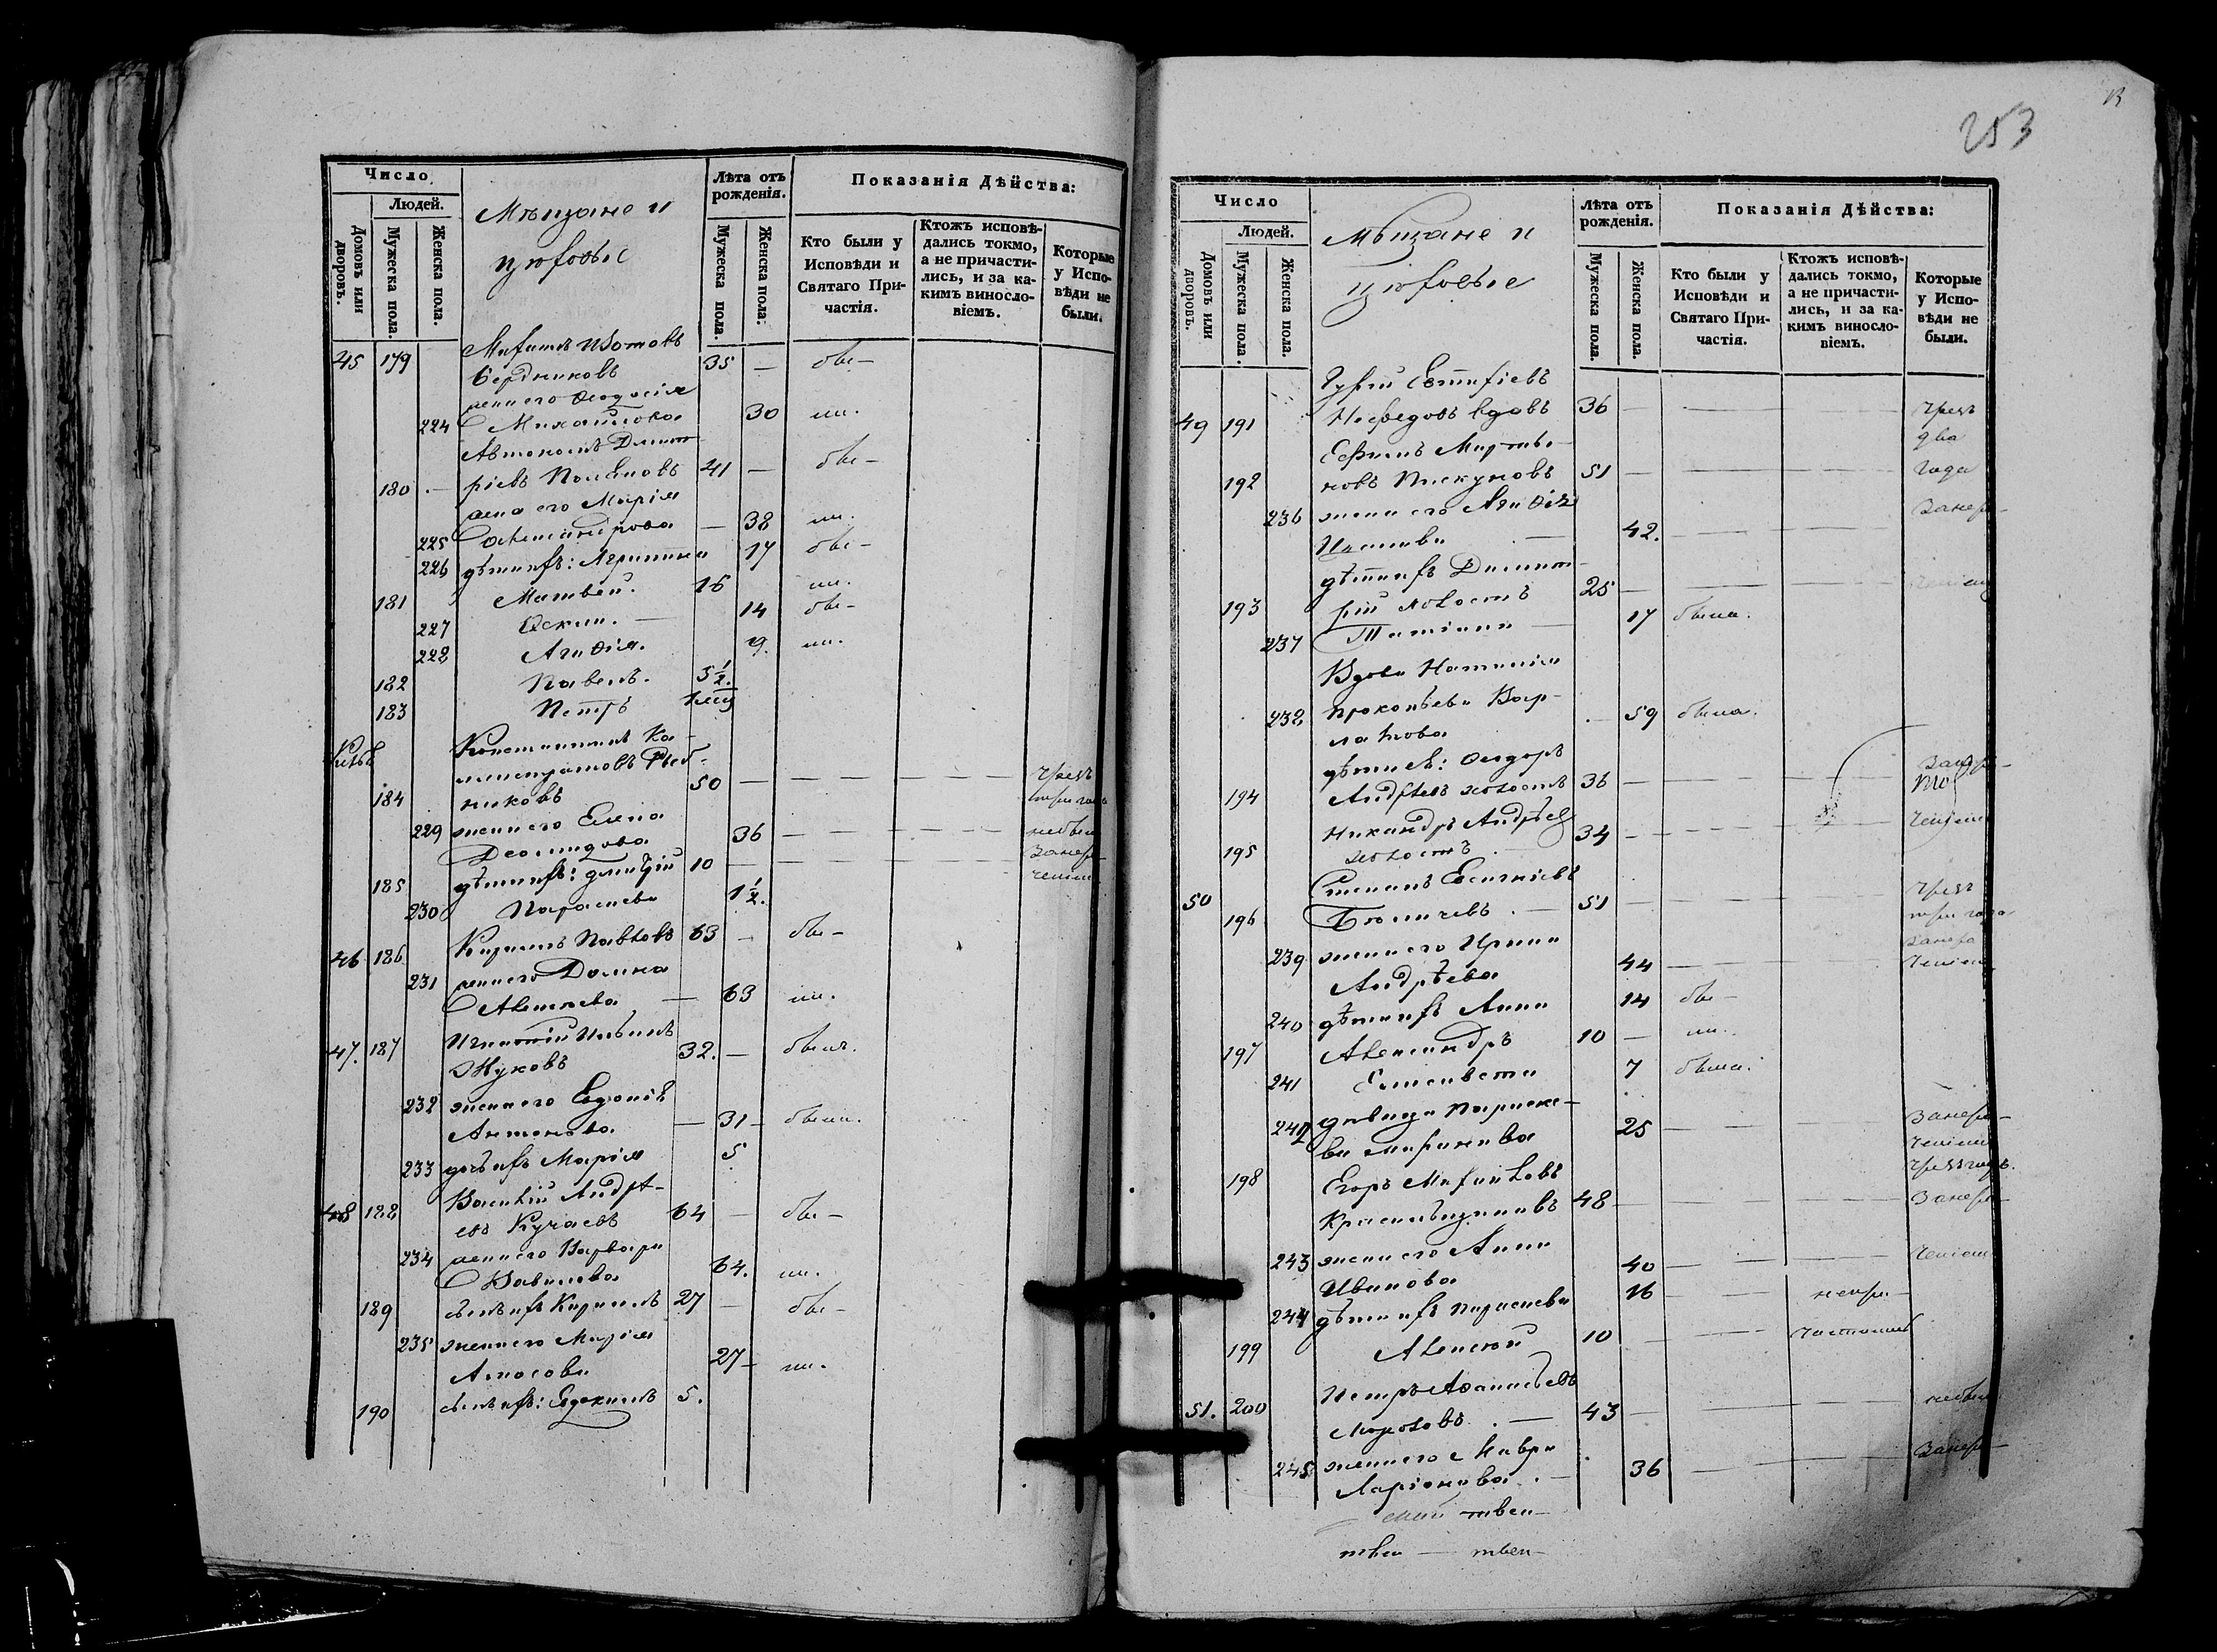 253
Число
Людей.
Домовъ или дворовъ.
Мужеска пола
Женска пола.
Мѣщане и
цеховые
Лѣта отъ рожденія.
Мужеска пола.
Женска пола:
Показанія Дѣйства:
Кто были у Исповѣди и Святаго Причастія.
Ктожъ исповѣдались токмо, а не причастились, и за какимъ винословіемъ.
Которые у Исповѣди не были.
45 179 Бердниковъ 35 — бы—
жена его Ѳеодосія
224 Михайлова 30 ли.
Автономъ Димит
180 — ріевъ 41 — бы—
жена его Марія
225 Александрова — 38 ли.
226 дѣти ихъ: Агрипина 17 бы—
181 Матвей. 16 ли.
227 14 бы—
228 Агаѳія. 9. ли.
182 Павелъ. 3½.
183 Петръ
Константинъ Ка-
184 никовъ 50 — — — — чрезъ
три года
229 жена его Елена
36 — — — — небы
занера
185 дѣти ихъ: Димитрій 10 — — — —
ченіем
230 Параскева 1½.
46 186 Кирилъ Павловъ 63 — бы—
231 жена его Домна
Алексеева — 63 ли.
47. 187 Игнатій Ильинъ
Жуковъ 32. — былъ.
232 жена его Евдокія
Антонова — 31 — была.
233 дочь ихъ Марія 5
48 188 Василій Андрѣ-
евъ Кучаевъ 64 — бы—
234 жена его Варвара
Вавилова 64. ли.
189 сынъ ихъ Кирилъ 27 — бы—
235 жена его Марія
Амосова 27 — ли.
190 сынъ ихъ: Евдокимъ 5.
Число
Людей.
Домовъ или дворовъ.
Мужеска пола.
Женска пола.
Мѣщане и
цеховые
Лѣта отъ рожденія.
Мужеска пола.
Женска пола.
Показанія Дѣйства:
Кто были у Исповѣди и Святаго Причастія.
Ктожъ исповѣдались токмо, а не причастились, и за какимъ винословіемъ.
Которые у Исповѣди не были.
Гурій Евтифіевъ
49 191 Нефедовъ вдовъ 36 — — — чрезъ
два
Ефимъ Марты-
192 новъ Пискуновъ 51 — — — года
236 жена его Агаѳія занера
42. — — —
дѣти ихъ Димит-
193 рій холостъ 25 — — — ченіем
237 Татіана — 17 была.
Вдова Наталія
238 Прокопьева Вар-
— 59 была.
лакова
дѣти ея: Ѳеодоръ
194 Андрѣевъ холостъ 36 — — — занера
Никандръ Андрѣев
195 холостъ 34 — — — ченіем
50 Степанъ Евгеніевъ
196 51 — — — чрезъ
три года
239 жена его Ирина занера
Андрѣева 44 — — — ченіем
240 дѣти ихъ Анна 14 бы—
197 Александръ 10 — ли.
241 Елисавета 7 была.
242 дѣвица Параске-
ва Миронова 25 — — — занера
ченіем
198 Егоръ Михайловъ чрезъ годъ.
Красильщиковъ 48 — — — занера
243 жена его Анна
Иванова 40 — — — ченіем
244 дѣти ихъ Параскева 16 — — непри-
199 Алексѣй 10 — — частились
Петръ Аѳанасьевъ
51. 200 Морозовъ. — 43 — — — небы
245 жена его Мавра
Ларіонова. — 36 — — — занера